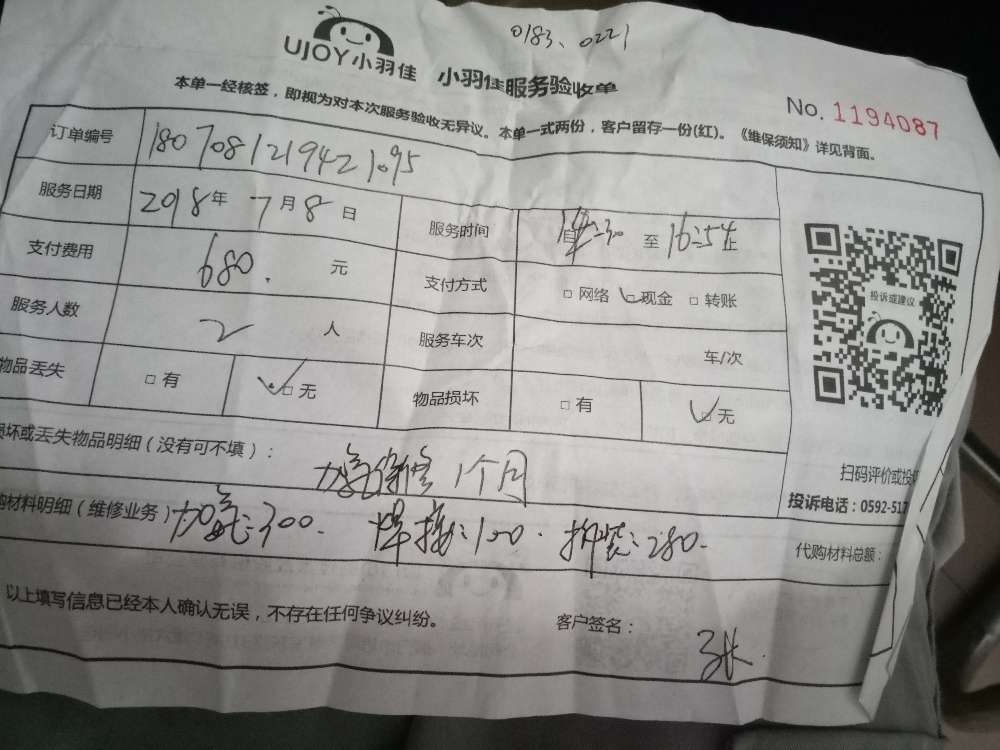 0183、0221
UJOY小羽佳 小羽佳服务验收单
No. 1194087
本单一经核签，即视为对本次服务验收无异议。本单一式两份，客户留存一份(红)。《维保须知》详见背面。
订单编号 1807081219421095
服务日期 2018年 7月8日 服务时间 自14:30 至 16:54止
支付费用 680. 元 支付方式 □ 网络 ☑现金 □ 转账
服务人数 2 人 服务车次 车/次
物品丢失 □ 有 ☑ 无 物品损坏 □ 有 ☑无
投诉或建议
损坏或丢失物品明细（没有可不填）： 加氟保修 1个月
扫码评价或投
投诉电话：0592-517
购材料明细（维修业务） 加氟:300. 焊接:100. 拆装:280.
代购材料总额：
以上填写信息已经本人确认无误，不存在任何争议纠纷。 客户签名：